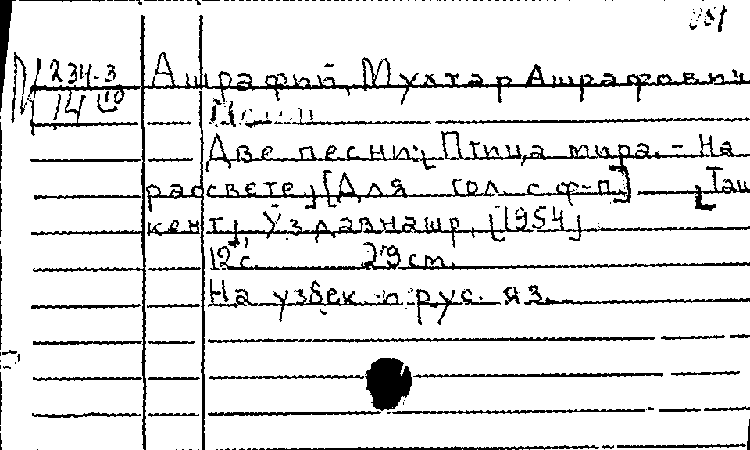 М 234-3 Ашрафий, Мухтар Ашрафович
14 10
Две песни: Птица мира. - На
рассвете; [Для гол. с ф-п.] [Таш
кент] Уздавнашр, [1954]
12 с. 29 cm.
На узбек. и рус. яз.